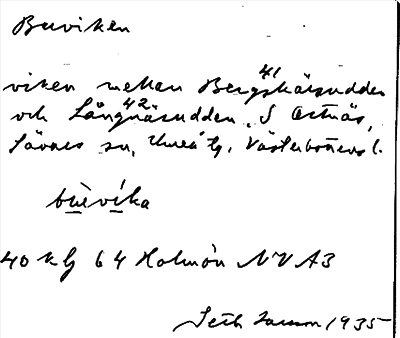 Buviken
viken mellan Bergskärsudden 41
och Långnäsudden 42, S Ostnäs,
Sävars sn, Umeå tg, Västerbottens l.
bùvíka
40 kf 64 Holmön NV A3
Seth Jansson 1935